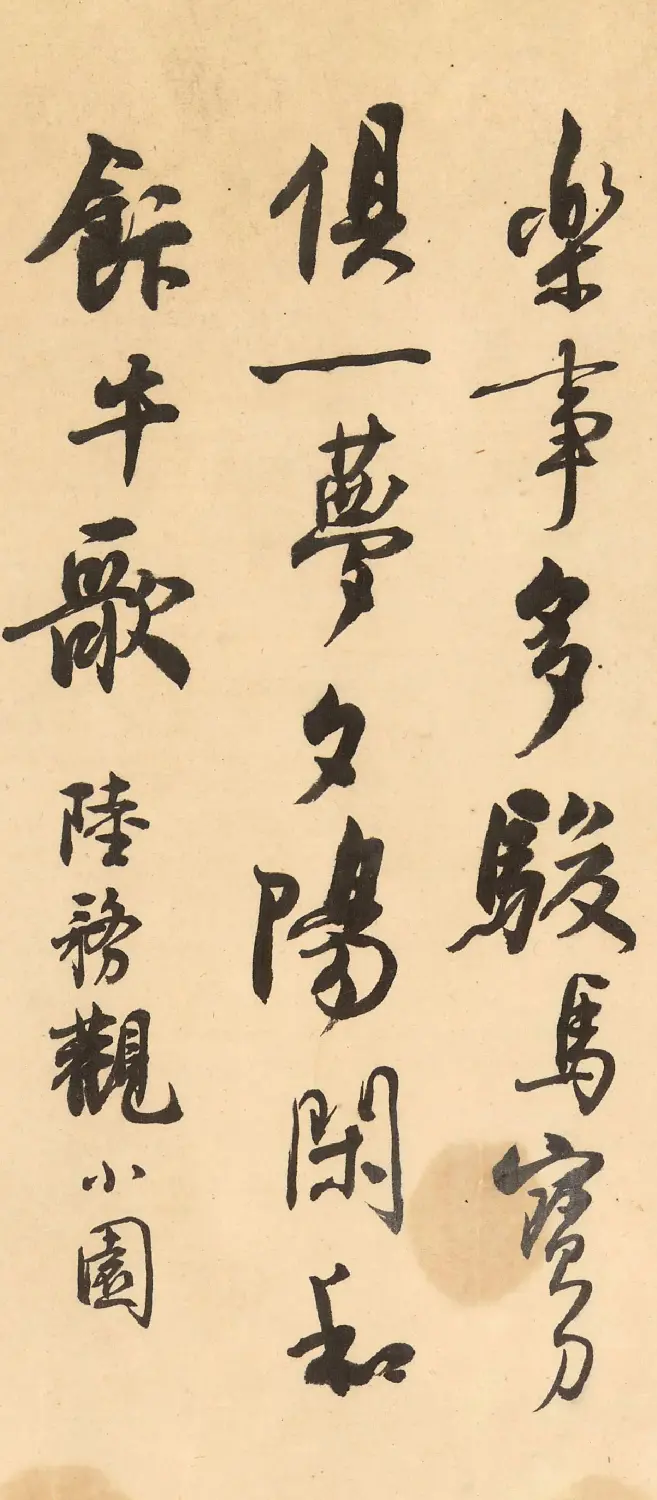 楽事多駿馬寶刀
俱一夢夕陽閑和
飰牛歌 陸務觀小園